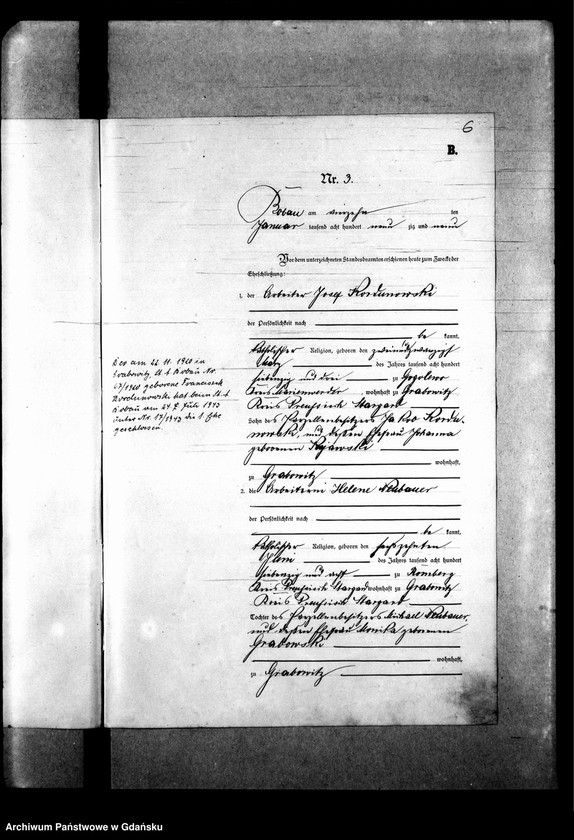 6
B.
Nr. 3.
Bobau am vierzehn ten
Januar tausend acht hundert neun zig und neun
Vor dem unterzeichneten Standesbeamten erschienen heute zum Zwecke der
Eheschließung:
1. der Arbeiter Josef Kordunowski
der Persönlichkeit nach
be kannt,
katholischer Religion, geboren den zweiundzwanzigsten
März des Jahres tausend acht hundert
siebenzig und drei zu Gogolewo
Kreis Marienwerder, wohnhaft zu Grabowitz
Kreis Preußisch Stargard
Sohn des Parzellenbesitzers Jakob Kordu-
nowski, und dessen Ehefrau Johanna
geborenen Kijewski
wohnhaft,
zu Grabowitz
2. die Arbeiterin Helene Neubauer
der Persönlichkeit nach
be kannt,
katholischer Religion, geboren den sechszehnten
Juni des Jahres tausend acht hundert
siebenzig und acht zu Romberg
Kreis Preußisch Stargard wohnhaft zu Grabowitz
Kreis Preußisch Stargard
Tochter des Parzellenbesitzers Michael Neubauer,
und dessen Ehefrau Monika geborenen
Grabowski
wohnhaft,
zu Grabowitz
Der am 22 11. 1910 in
Grabowitz, St. A. Bobau Nr.
67/1910 geborene Franciszek
Kordunowski hat beim St. A.
Bobau am 24. Juli 1943
unter Nr. 17/1943 die 1. Ehe
geschlossen
Archiwum Państwowe w Gdańsku